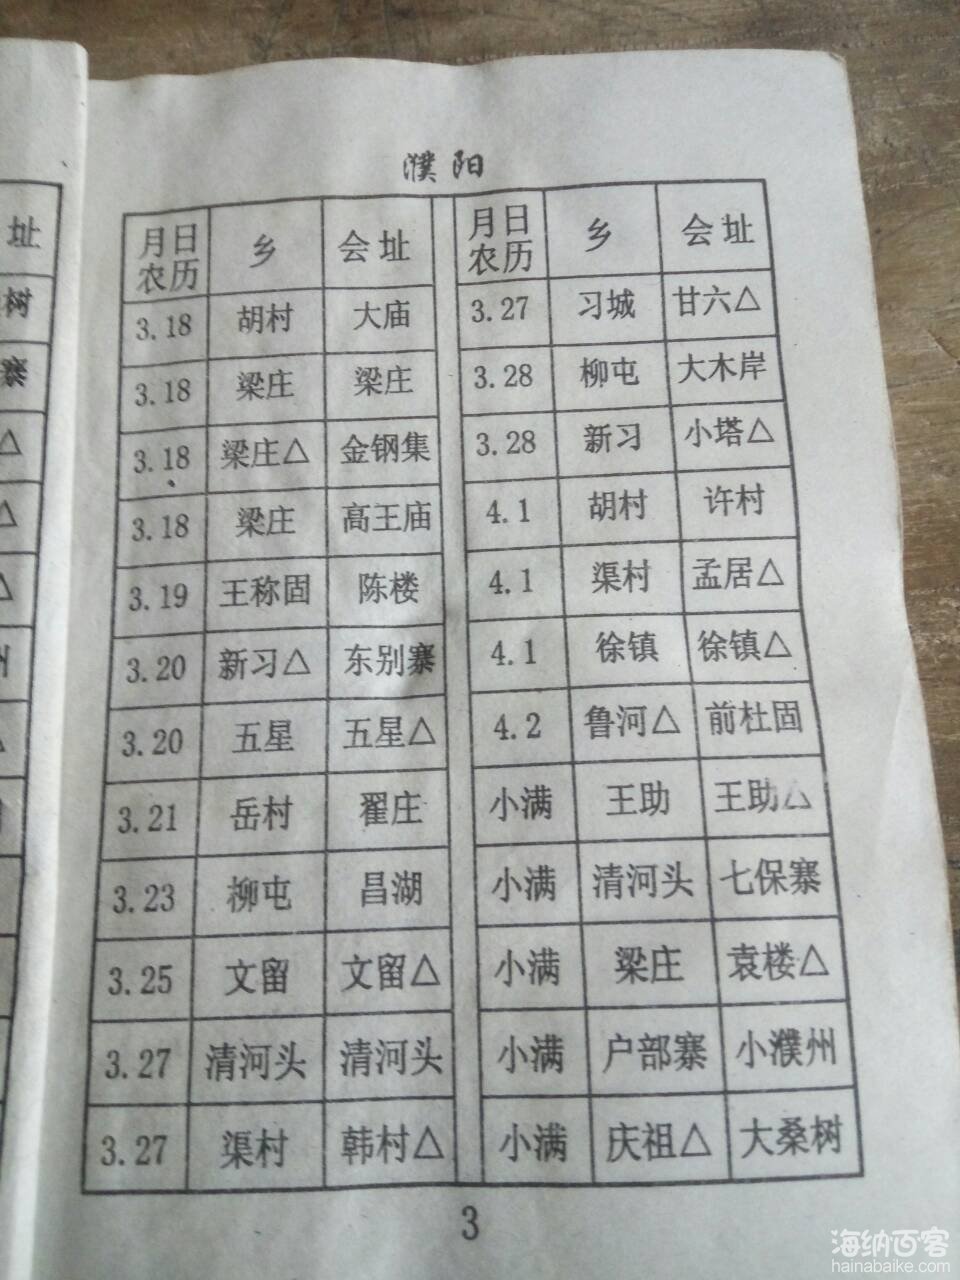 濮阳
月日农历 乡 会址
3.18 胡村 大庙
3.18 梁庄 梁庄
3.18 梁庄△ 金钢集
3.18 梁庄 高王庙
3.19 王称固 陈楼
3.20 新习△ 东别寨
3.20 五星 五星△
3.21 岳村 翟庄
3.23 柳屯 昌湖
3.25 文留 文留△
3.27 清河头 清河头
3.27 渠村 韩村△
月日农历 乡 会址
3.27 习城 甘六△
3.28 柳屯 大木岸
3.28 新习 小塔△
4.1 胡村 许村
4.1 渠村 孟居△
4.1 徐镇 徐镇△
4.2 鲁河△ 前杜固
小满 王助 王助△
小满 清河头 七保寨
小满 梁庄 袁楼△
小满 户部寨 小濮州
小满 庆祖△ 大桑树
3
址
树
寨
△
△
△
州
△
海纳百客
hainabaike.com